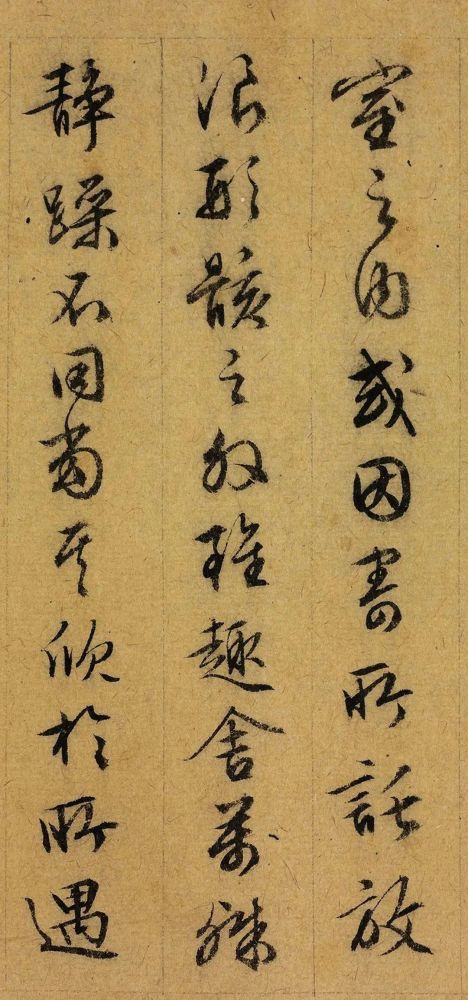 室之内或因寄所託放
浪形骸之外雖趣舍萬殊
靜躁不同當其欣於所遇